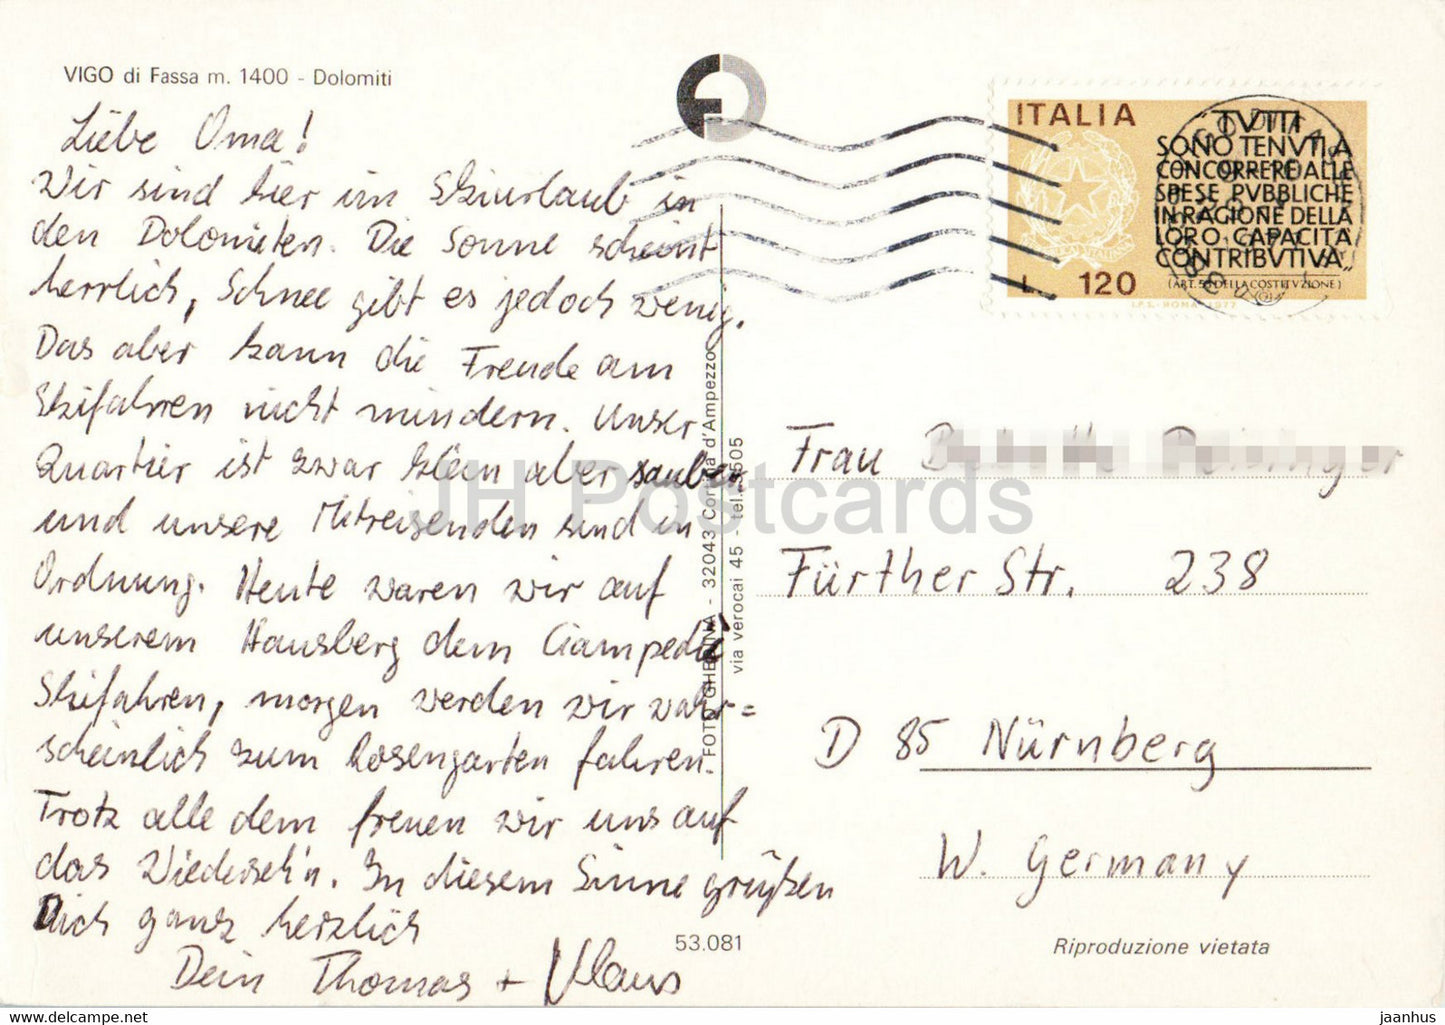 VIGO di Fassa m. 1400 - Dolomiti
Liebe Oma!
Wir sind hier im Skiurlaub in
den Dolomiten. Die Sonne scheint
herrlich, Schnee gibt es jedoch wenig.
Das aber kann die Freude am
Skifahren nicht mindern. Unser
Quartier ist zwar klein aber sauber
und unsere Mitreisenden sind in
Ordnung. Heute waren wir auf
unserem Hausberg dem Ciampedie
Skifahren, morgen werden wir wahr=
scheinlich zum Rosengarten fahren.
Trotz alle dem freuen wir uns auf
das Wiederseh'n. In diesem Sinne grüßen
Dich ganz herzlich
Dein Thomas + Klaus
FOTO GHEDINA - 32043 Cortina d'Ampezzo
via verocai 45 - tel. 
53.081
ITALIA
TVTTI
SONO TENVTI A
CONCORRERE ALLE
SPESE PVBBLICHE
IN RAGIONE DELLA
LORO CAPACITÀ
CONTRIBVTIVA„
(ART. 53 DELLA COSTITVZIONE)
L. 120
I.P.S. - ROMA - 1977
Frau
Fürther Str. 238
D 85 Nürnberg
W. Germany
Riproduzione vietata
JH Postcards
jaanhus